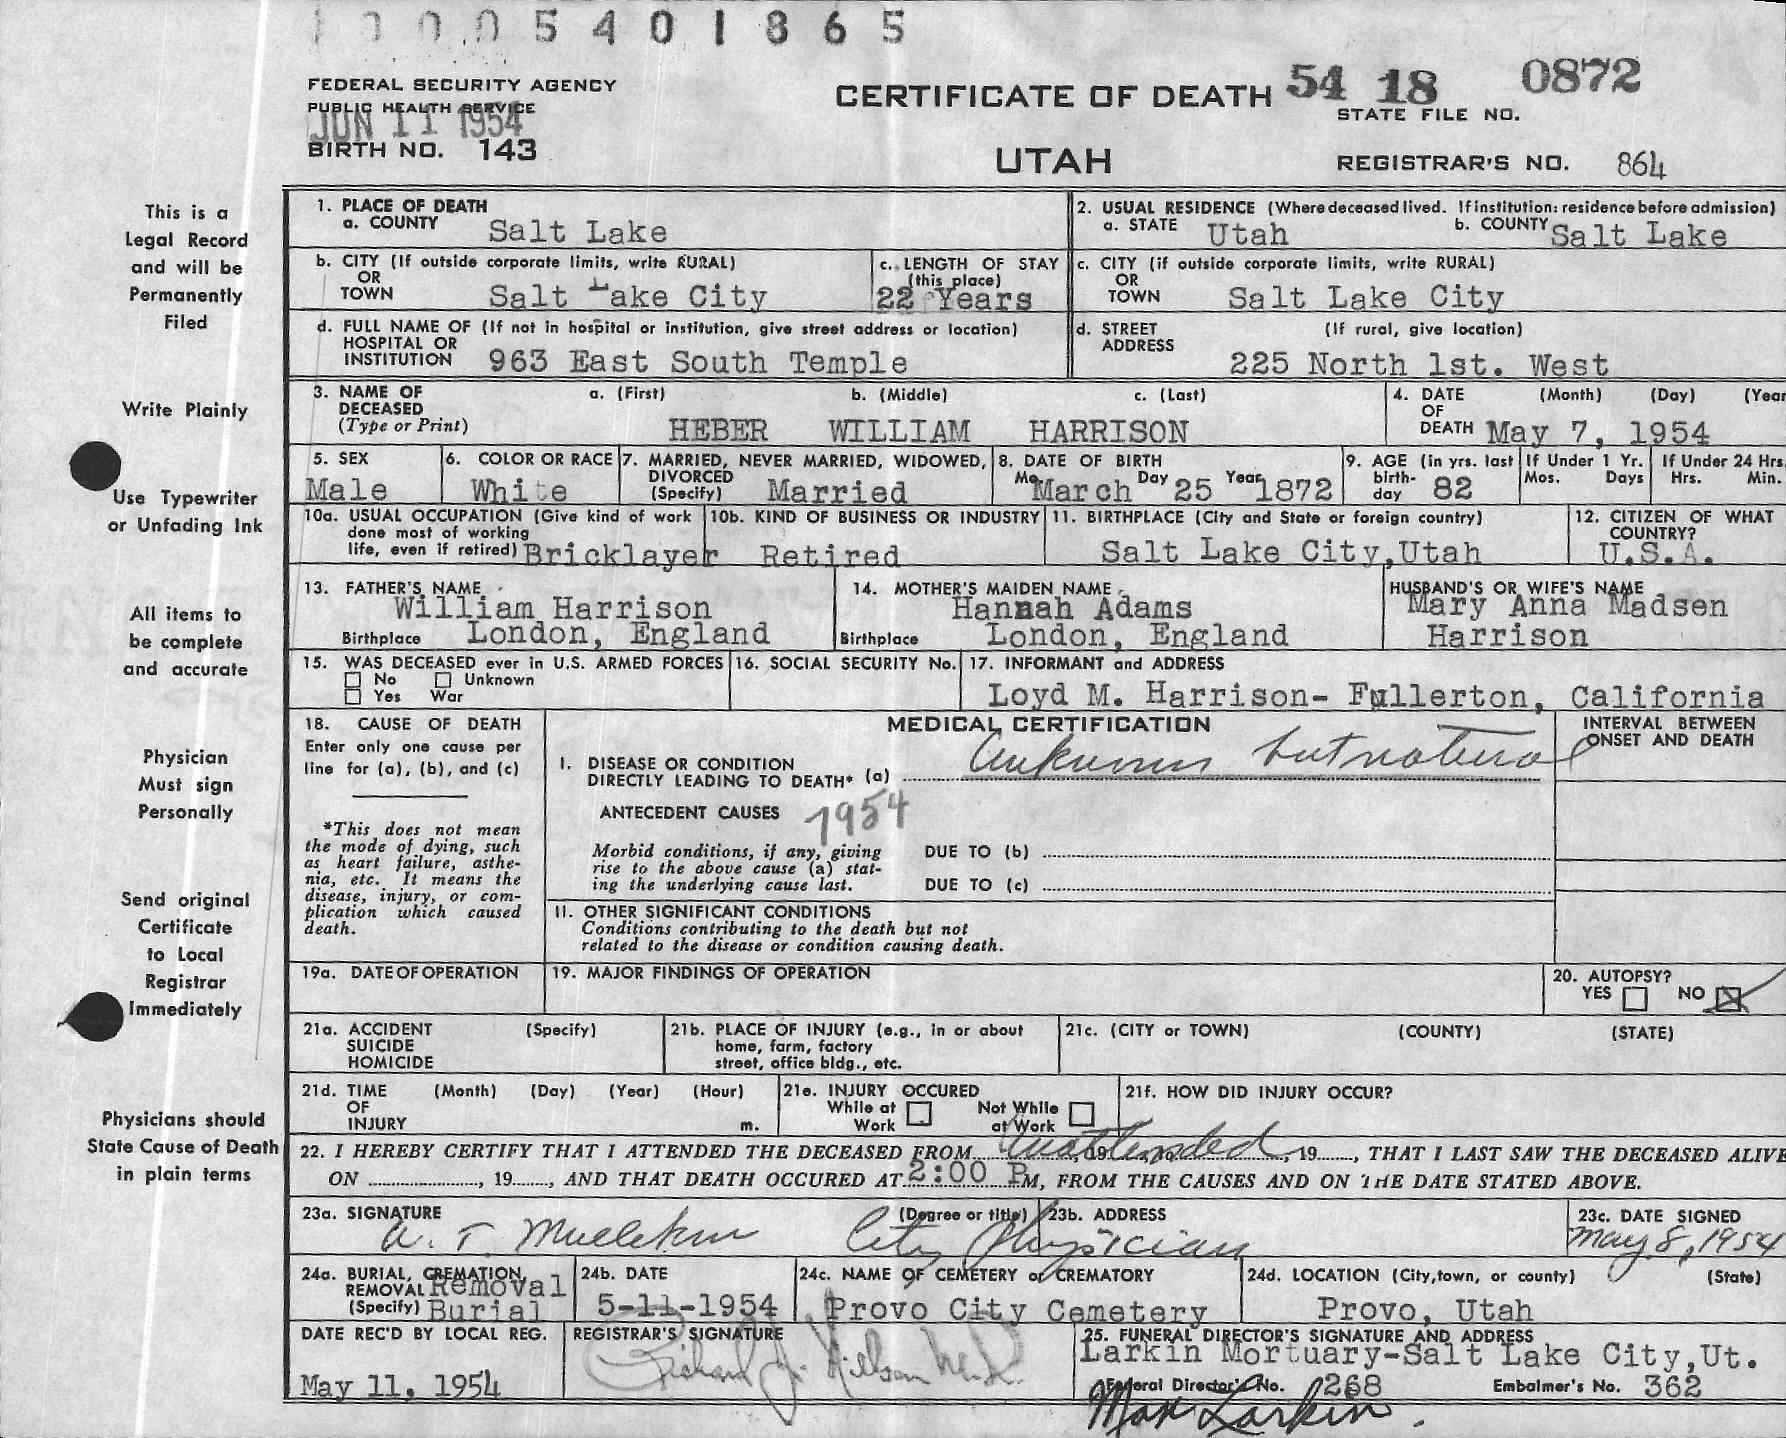 10005401865
FEDERAL SECURITY AGENCY
PUBLIC HEALTH SERVICE
JUN 11 1954
BIRTH NO. 143
CERTIFICATE OF DEATH
UTAH
54 18 0872
STATE FILE NO.
REGISTRAR'S NO. 864
This is a
Legal Record
and will be
Permanently
Filed
Write Plainly
Use Typewriter
or Unfading Ink
All items to
be complete
and accurate
Physician
Must sign
Personally
Send original
Certificate
to Local
Registrar
Immediately
Physicians should
State Cause of Death
in plain terms
1. PLACE OF DEATH
a. COUNTY Salt Lake
2. USUAL RESIDENCE (Where deceased lived. If institution: residence before admission)
a. STATE Utah b. COUNTY Salt Lake
b. CITY (If outside corporate limits, write RURAL)
OR
TOWN Salt Lake City
c. LENGTH OF STAY
(this place)
22 Years
c. CITY (if outside corporate limits, write RURAL)
OR
TOWN Salt Lake City
d. FULL NAME OF (If not in hospital or institution, give street address or location)
HOSPITAL OR
INSTITUTION 963 East South Temple
d. STREET (If rural, give location)
ADDRESS
225 North 1st. West
3. NAME OF a. (First) b. (Middle) c. (Last)
DECEASED
(Type or Print) HEBER WILLIAM HARRISON
4. DATE (Month) (Day) (Year
OF
DEATH May 7, 1954
5. SEX
Male
6. COLOR OR RACE
White
7. MARRIED, NEVER MARRIED, WIDOWED,
DIVORCED
(Specify) Married
8. DATE OF BIRTH
Mo March Day 25 Year 1872
9. AGE (in yrs. last
birth-
day 82
If Under 1 Yr.
Mos. Days
If Under 24 Hrs.
Hrs. Min.
10a. USUAL OCCUPATION (Give kind of work
done most of working
life, even if retired) Bricklayer
10b. KIND OF BUSINESS OR INDUSTRY
Retired
11. BIRTHPLACE (City and State or foreign country)
Salt Lake City,Utah
12. CITIZEN OF WHAT
COUNTRY?
U.S.A.
13. FATHER'S NAME
William Harrison
Birthplace London, England
14. MOTHER'S MAIDEN NAME
Hannah Adams
Birthplace London, England
HUSBAND'S OR WIFE'S NAME
Mary Anna Madsen
Harrison
15. WAS DECEASED ever in U.S. ARMED FORCES
No Unknown
Yes War
16. SOCIAL SECURITY No.
17. INFORMANT and ADDRESS
Loyd M. Harrison- Fullerton, California
18. CAUSE OF DEATH
Enter only one cause per
line for (a), (b), and (c)
*This does not mean
the mode of dying, such
as heart failure, asthe-
nia, etc. It means the
disease, injury, or com-
plication which caused
death.
MEDICAL CERTIFICATION
INTERVAL BETWEEN
ONSET AND DEATH
I. DISEASE OR CONDITION
DIRECTLY LEADING TO DEATH* (a) Unknown but natural
ANTECEDENT CAUSES 1954
Morbid conditions, if any, giving
rise to the above cause (a) stat-
ing the underlying cause last.
DUE TO (b)
DUE TO (c)
II. OTHER SIGNIFICANT CONDITIONS
Conditions contributing to the death but not
related to the disease or condition causing death.
19a. DATE OF OPERATION
19. MAJOR FINDINGS OF OPERATION
20. AUTOPSY?
YES NO
21a. ACCIDENT (Specify)
SUICIDE
HOMICIDE
21b. PLACE OF INJURY (e.g., in or about
home, farm, factory
street, office bldg., etc.
21c. (CITY or TOWN) (COUNTY) (STATE)
21d. TIME (Month) (Day) (Year) (Hour)
OF
INJURY m.
21e. INJURY OCCURED
While at Work Not While at Work
21f. HOW DID INJURY OCCUR?
22. I HEREBY CERTIFY THAT I ATTENDED THE DECEASED FROM Unattended, 19, 19, THAT I LAST SAW THE DECEASED ALIVE
ON, 19, AND THAT DEATH OCCURED AT 2:00 P M, FROM THE CAUSES AND ON THE DATE STATED ABOVE.
23a. SIGNATURE (Degree or title)
City Physician
23b. ADDRESS
23c. DATE SIGNED
May 8, 1954
24a. BURIAL, CREMATION,
REMOVAL Removal
(Specify) Burial
24b. DATE
5-11-1954
24c. NAME OF CEMETERY or CREMATORY
Provo City Cemetery
24d. LOCATION (City,town, or county) (State)
Provo, Utah
DATE REC'D BY LOCAL REG.
May 11, 1954
REGISTRAR'S SIGNATURE
Richard J. Nielson M.D.
25. FUNERAL DIRECTOR'S SIGNATURE AND ADDRESS
Larkin Mortuary-Salt Lake City,Ut.
Funeral Director's No. 268 Embalmer's No. 362
Max Larkin.